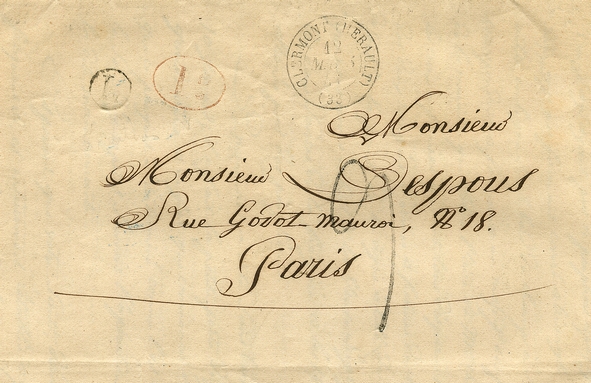 CLERMONT (HERAULT)
12
MARS
(33)
1
Monsieur
Monsieur Despous
Rue Godot-mauroi, N° 18.
Paris